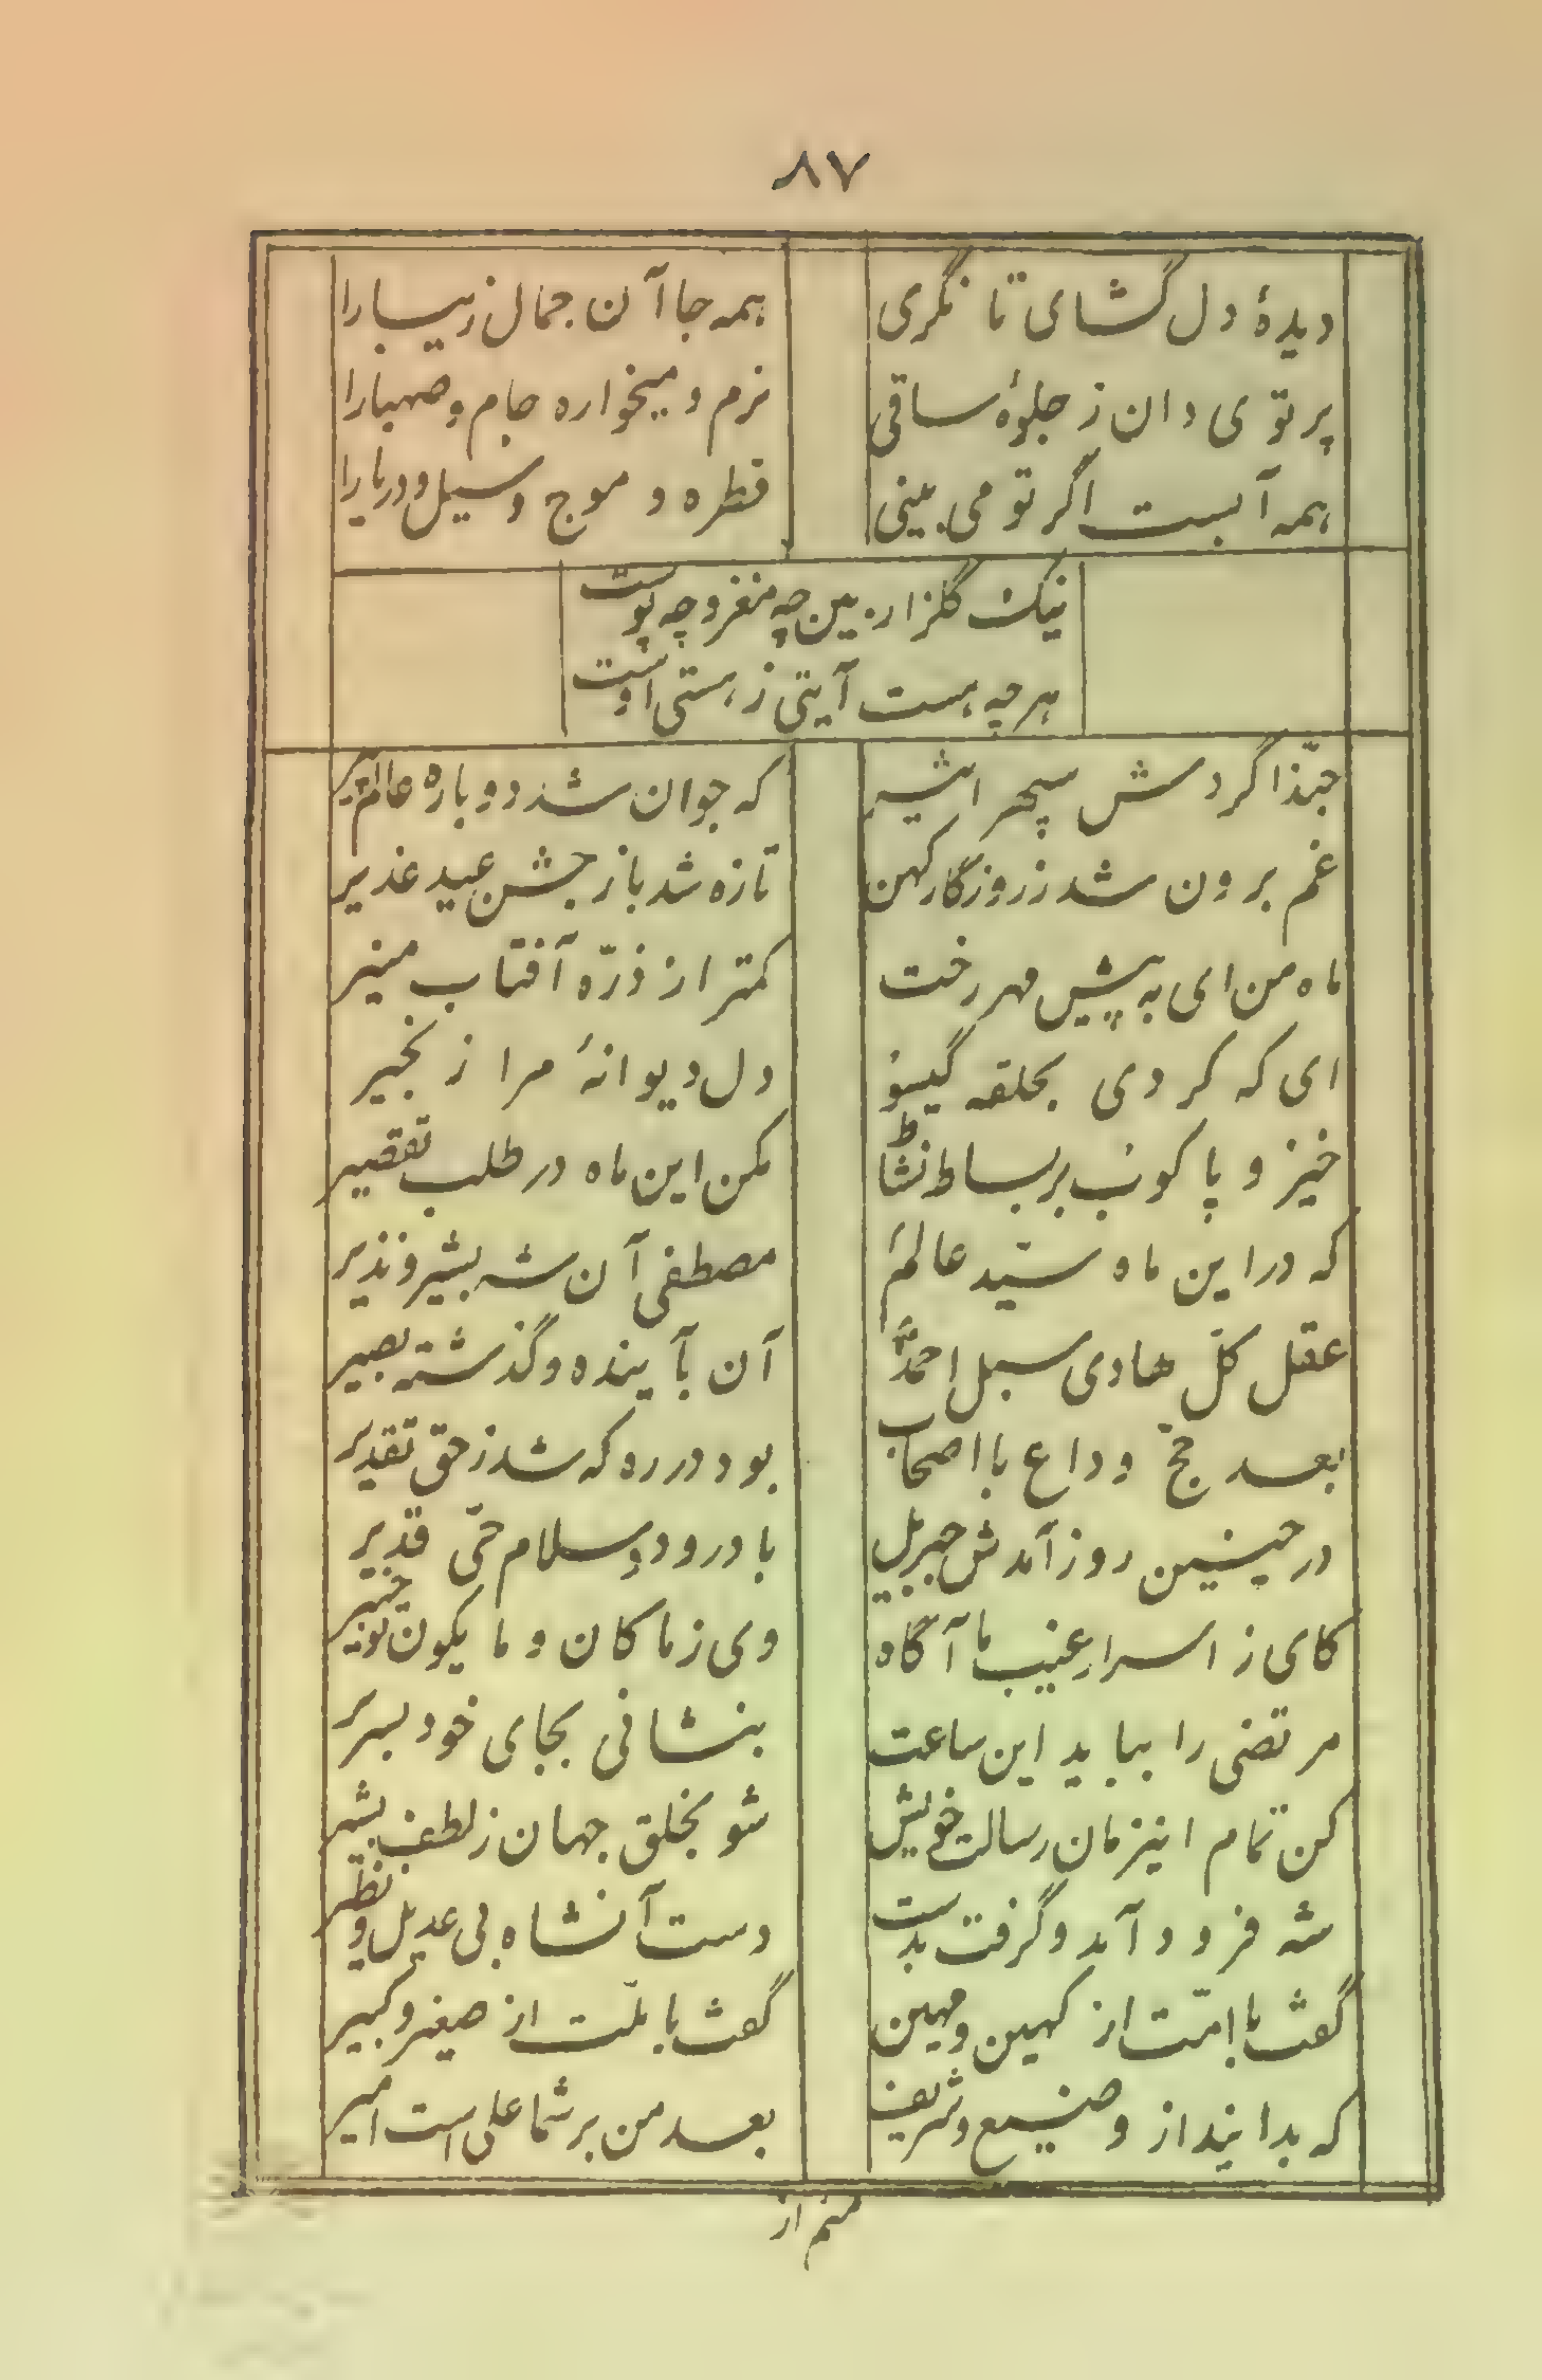 ۸۷
دیدهٔ دل گشای تا نگری همه جا آن جمال زیبا را
پرتوی دان ز جلوهٔ ساقی بزم و میخواره جام و صهبا را
همه آبست اگر تو می بینی قطره و موج و سیل و دریا را
نیک گلزار بین چه مغز و چه پوست
هر چه هست آیتی ز هستی اوست
حبّذا گردش سپهر اثیر که جوان شد دوباره عالم پیر
غم برون شد ز روزگار کهن تازه شد باز جشن عید غدیر
ماه من ای به پیش مهر رخت کمتر از ذرّه آفتاب منیر
ای که کردی بحلقه گیسو دل دیوانهٔ مرا زنجیر
خیز و پا کوب بر بساط نشاط مکن این ماه در طلب تقصیر
که در این ماه سیّد عالم مصطفی آن شه بشیر و نذیر
عقل کلّ هادی سبل احمد آن بآینده و گذشته بصیر
بعد حجّ وداع با اصحاب بود در ره که شد ز حق تقدیر
در چنین روز آمدش جبریل با درود و سلام حیّ قدیر
کای ز اسرار غیب ما آگاه وی ز ما کان و ما یکون تو خبیر
مرتضی را بباید این ساعت بنشانی بجای خود بسریر
کن تمام اینزمان رسالت خویش شو بخلق جهان ز لطف بشیر
شه فرود آمد و گرفت بدست دست آنشاه بی عدیل و نظیر
گفت با امّت از کهین و مهین گفت با ملّت از صغیر و کبیر
که بدانید از وضیع و شریف بعد من بر شما علی است امیر
منم از